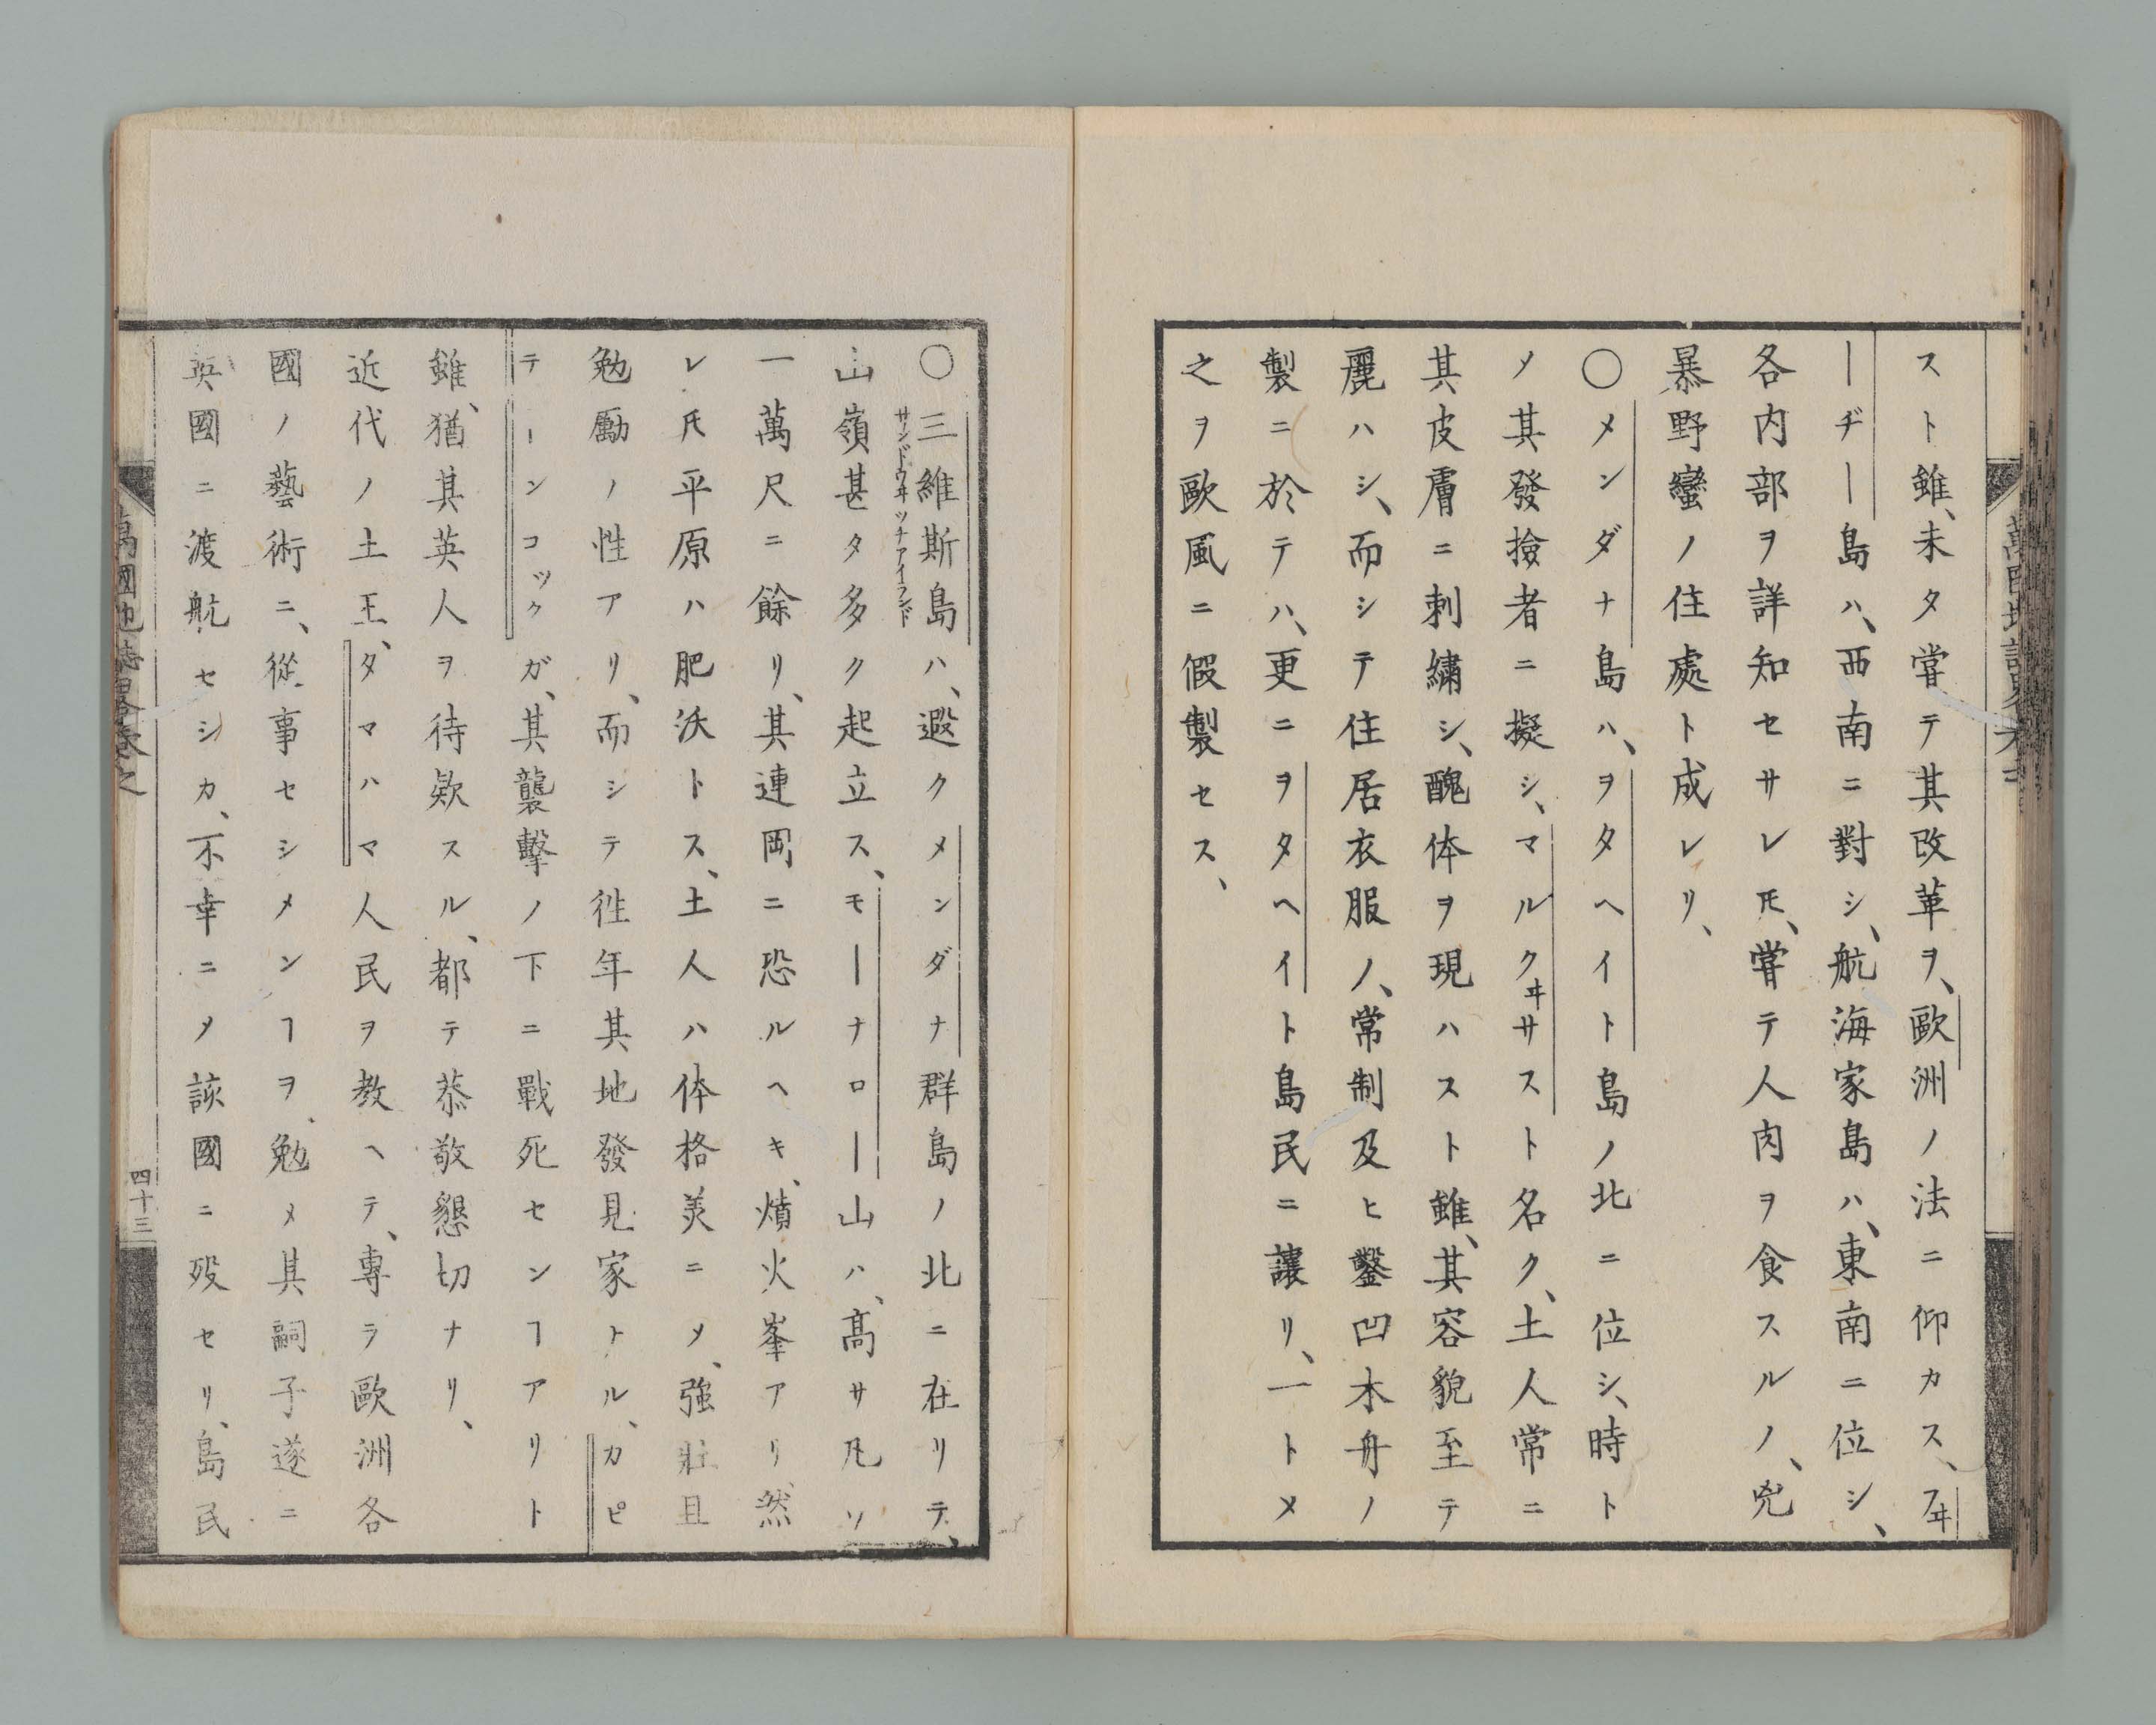 スト雖、未タ甞テ其改革ヲ、歐洲ノ法ニ仰カス、フヰ
ーヂー島ハ、西南ニ對シ、航海家島ハ、東南ニ位シ、
各内部ヲ詳知セサレ𪜈、甞テ人肉ヲ食スルノ、兇
暴野蠻ノ住處ト成レリ、
〇メンダナ島ハ、ヲタヘイト島ノ北ニ位シ、時ト
ノ其發撿者ニ擬シ、マルクヰサスト名ク、土人常ニ
其皮膚ニ刺繡シ、醜体ヲ現ハスト雖、其容貌至テ
麗ハシ、而シテ住居衣服ノ、常制及ヒ鑿凹木舟ノ
製ニ於テハ、更ニヲタヘイト島民ニ讓リ、一トメ
之ヲ歐風ニ假製セス、
〇三維斯島ハ、遐クメンダナ群島ノ北ニ在リテ、
サンドウヰツチアイランド
山嶺甚タ多ク起立ス、モーナロー山ハ、高サ凡ソ
一萬尺ニ餘リ、其連岡ニ恐ルヘキ、燌火峯アリ、然
レ𪜈平原ハ肥沃トス、土人ハ体格美ニメ、強壯且
勉勵ノ性アリ、而シテ徃年其地發見家トル、カピ
テーンコツクガ、其襲擊ノ下ニ戰死センヿアリト
雖、猶其英人ヲ待欵スル、都テ恭敬懇切ナリ、
近代ノ土王、タマハマ人民ヲ教ヘテ、專ラ歐洲各
國ノ藝術ニ、從事セシメンヿヲ、勉メ其嗣子遂ニ
英國ニ渡航セシカ、不幸ニメ該國ニ歿セリ、島民
萬國地誌畧卷之
四十三